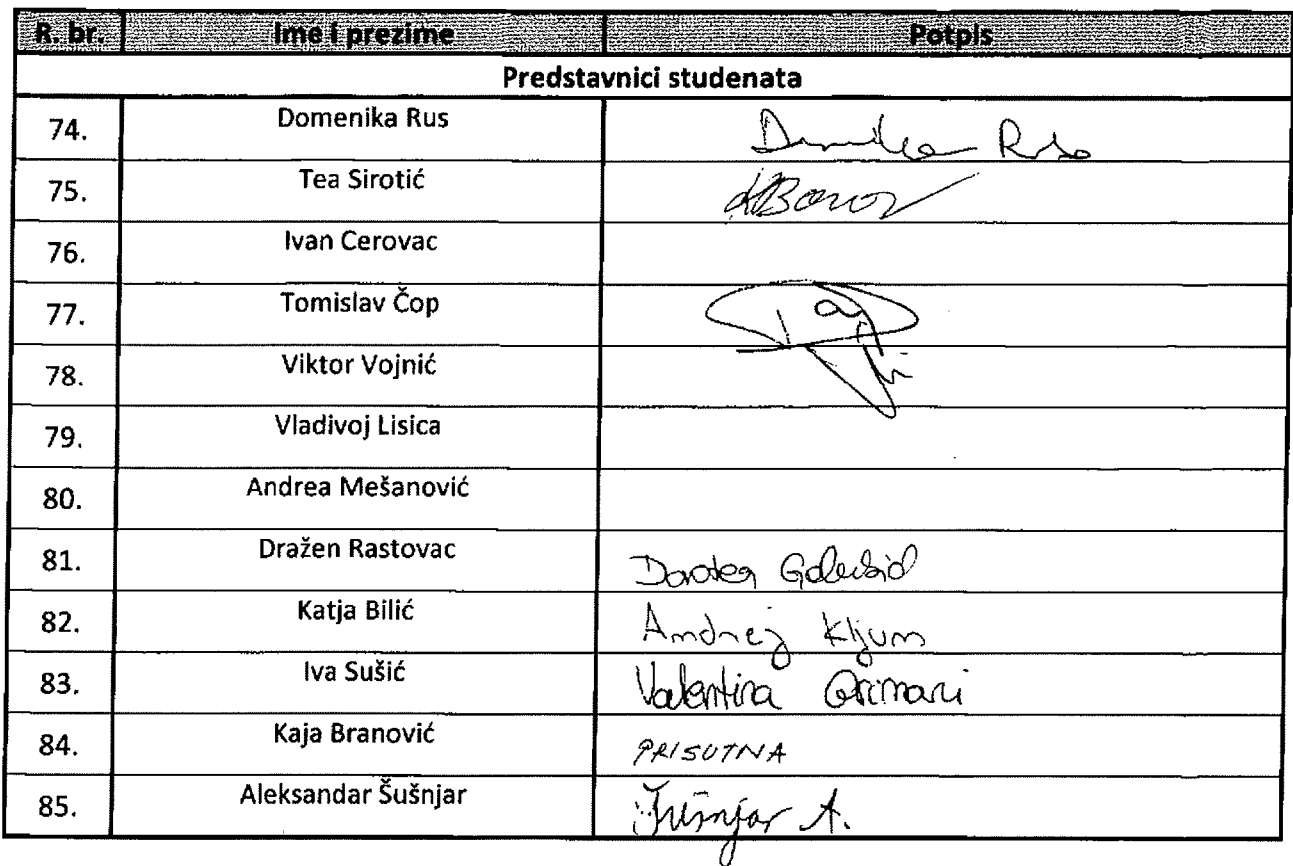 R. br. Ime i prezime Potpis
Predstavnici studenata
74. Domenika Rus
75. Tea Sirotić
76. Ivan Cerovac
77. Tomislav Čop
78. Viktor Vojnić
79. Vladivoj Lisica
80. Andrea Mešanović
81. Dražen Rastovac Dorotea
82. Katja Bilić Andrej Kljum
83. Iva Sušić Valentina Grimani
84. Kaja Branović PRISUTNA
85. Aleksandar Šušnjar Šušnjar A.